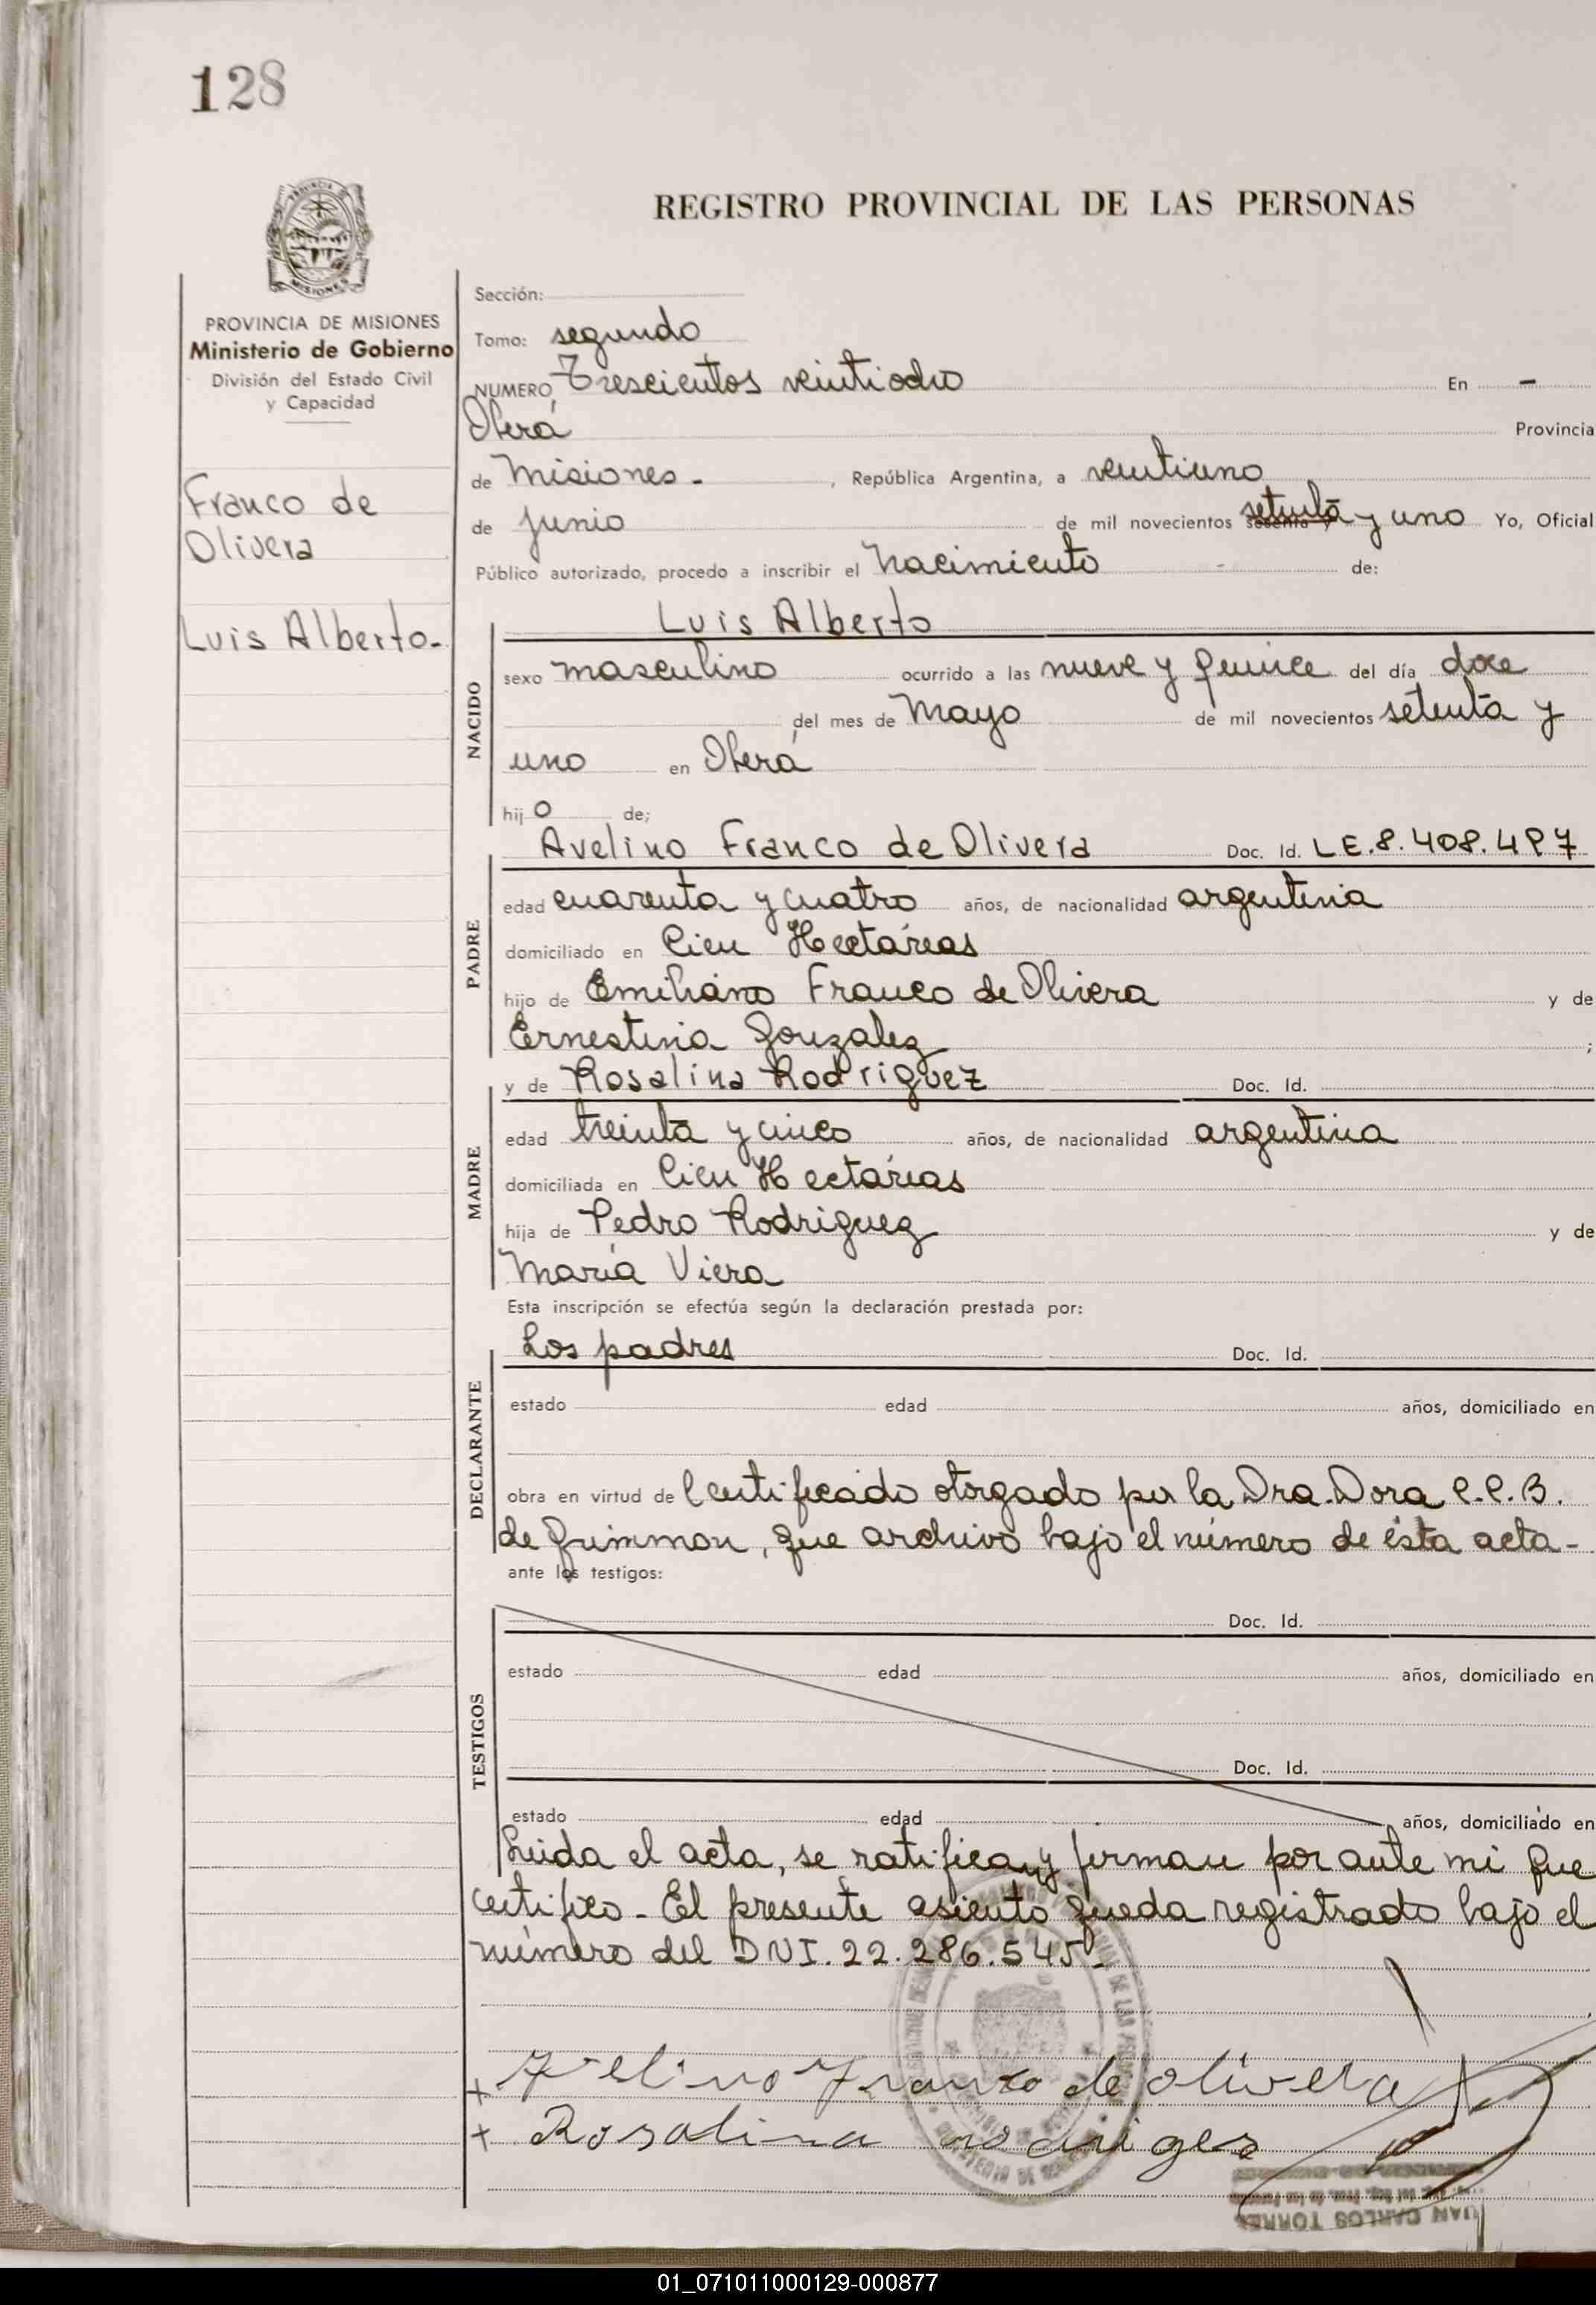 128
REGISTRO PROVINCIAL DE LAS PERSONAS
PROVINCIA
MISIONES
PROVINCIA DE MISIONES
Ministerio de Gobierno
División del Estado Civil
y Capacidad
Franco de
Olivera
Luis Alberto.
Sección:
Tomo: segundo
NUMERO Trescientos veintiocho En -
Oberá Provincia
de Misiones - , República Argentina, a veintiuno
de Junio de mil novecientos setenta y uno Yo, Oficial
Público autorizado, procedo a inscribir el nacimiento de:
Luis Alberto
NACIDO
sexo masculino ocurrido a las nueve y quince del día doce
del mes de Mayo de mil novecientos setenta y
uno en Oberá
hijo de;
Avelino Franco de Olivera Doc. Id. L E. 8. 408. 497
PADRE
edad cuarenta y cuatro años, de nacionalidad argentina
domiciliado en Cien Hectáreas
hijo de Emiliano Franco de Olivera y de
Ernestina Gonzalez ;
y de Rosalina Rodriguez Doc. Id.
MADRE
edad treinta y cinco años, de nacionalidad argentina
domiciliada en Cien Hectáreas
hija de Pedro Rodriguez y de
María Viera
Esta inscripción se efectúa según la declaración prestada por:
Los padres Doc. Id.
DECLARANTE
estado edad años, domiciliado en
obra en virtud de Certificado otorgado por la Dra. Dora C. C. B.
de , que archivo bajo el número de ésta acta -
ante los testigos:
TESTIGOS
Doc. Id.
estado edad años, domiciliado en
Doc. Id.
estado edad años, domiciliado en
Leída el acta, se ratifican y firman por ante mi que
certifico - El presente asiento queda registrado bajo el
número del D N I. 22. 286. 545 -
+ Avelino Franco de olivera
+ Rosalina rodriges
UAN CARLOS TORRES
01_071011000129-000877